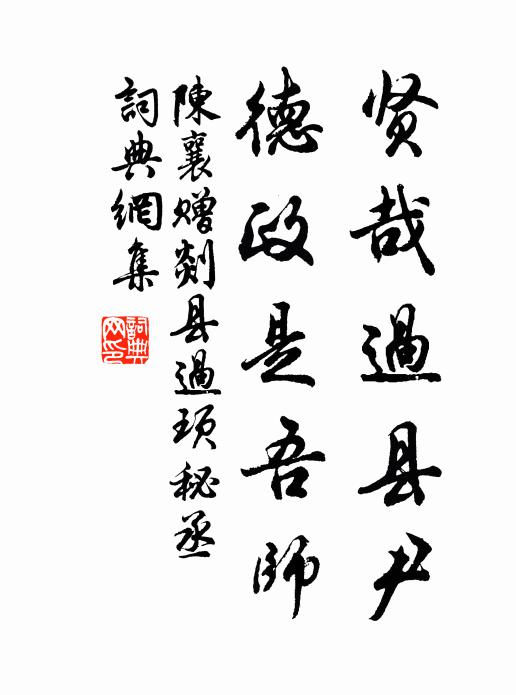 贤哉過县尹
德政是吾師
陳襄赠剡县過項秘丞
詞典網集
詞典网印